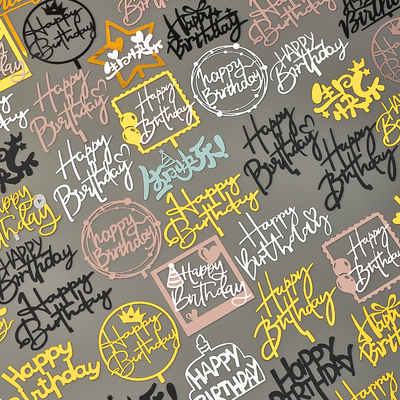 Happy
Birthday
生日
快乐
Happy
Birthday
Birthday
Happy
Birthday
Happy
Birthday
happy
Birthday
HAPPY
Birthday
生日
快乐
Happy
Birthday
生日快乐
Happy
Birthday
Happy
Birthday
Happy
Birthday
happy
Birthday
Happy
Birthday
Happy
Birthday
HAPPY
Birthday
Happy
Birthday
Happy
Birthday
Happy
Birthday
Happy
Birthday
Happy
Birthday
Happy
Birthday
HAPPY
BIRTHDAY
HAPPY
BIRTHDAY
HAPPY